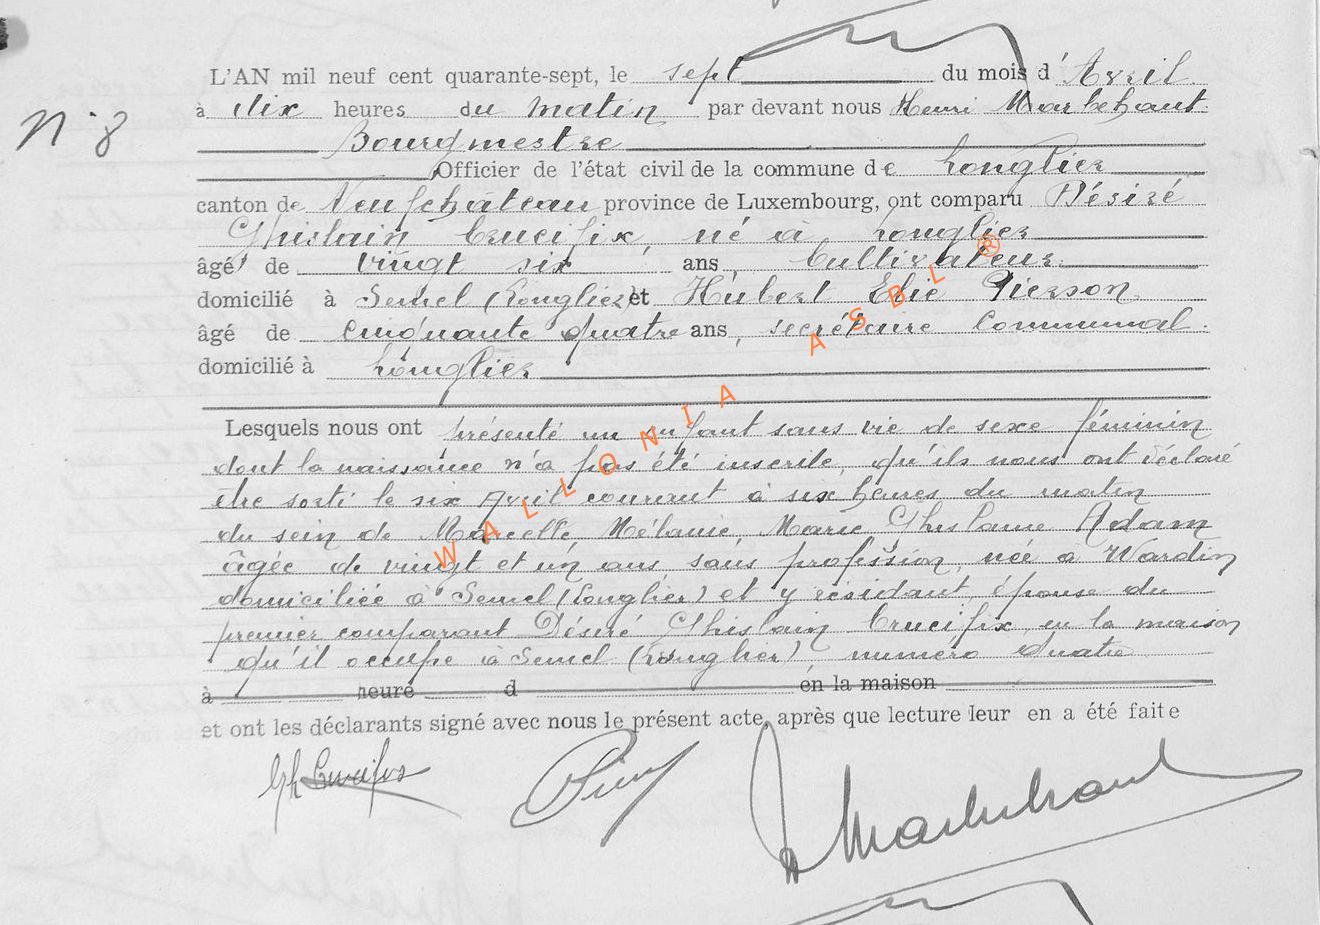 L'AN mil neuf cent quarante-sept, le sept du mois d'Avril
N° 8
à dix heures du matin par devant nous Henri Marbehant
Bourgmestre
Officier de l'état civil de la commune de Longlier
canton de Neufchâteau province de Luxembourg, ont comparu Désiré
Ghislain Crucifix, né à Longlier
âgé de vingt six ans, Cultivateur
domicilié à Semel (Longlier) et Hubert Elie Pierson
âgé de cinquante quatre ans, secrétaire communal
domicilié à Longlier
Lesquels nous ont présenté un enfant sans vie de sexe féminin
dont la naissance n'a pas été inscrite, qu'ils nous ont déclaré
être sorti le six Avril courant à six heures du matin
du sein de Marcelle, Mélanie, Marie Ghislaine Adam
âgée de vingt et un ans sans profession, née à Wardin
domiciliée à Semel (Longlier) et y résidant, épouse du
premier comparant Désiré Ghislain Crucifix, en la maison
qu'il occupe à Semel (Longlier), numéro quatre
à heure d en la maison
et ont les déclarants signé avec nous le présent acte, après que lecture leur en a été faite
Gh Crucifix
Marbehant
WALLONIA ASBL ®